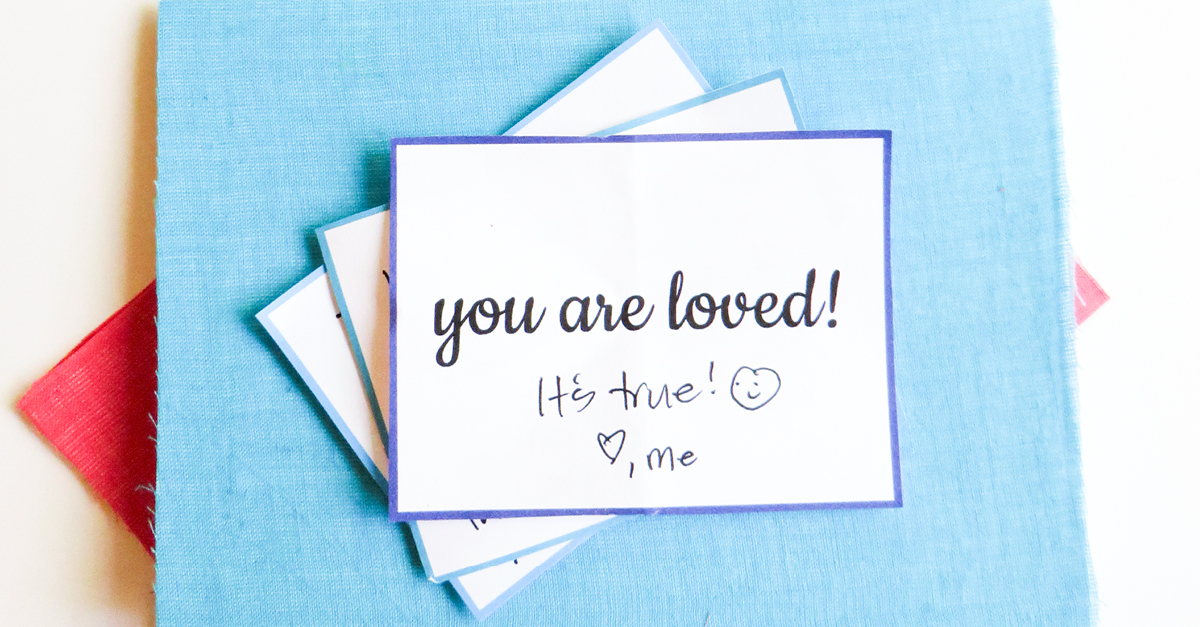 you are loved!
It's true!
, me